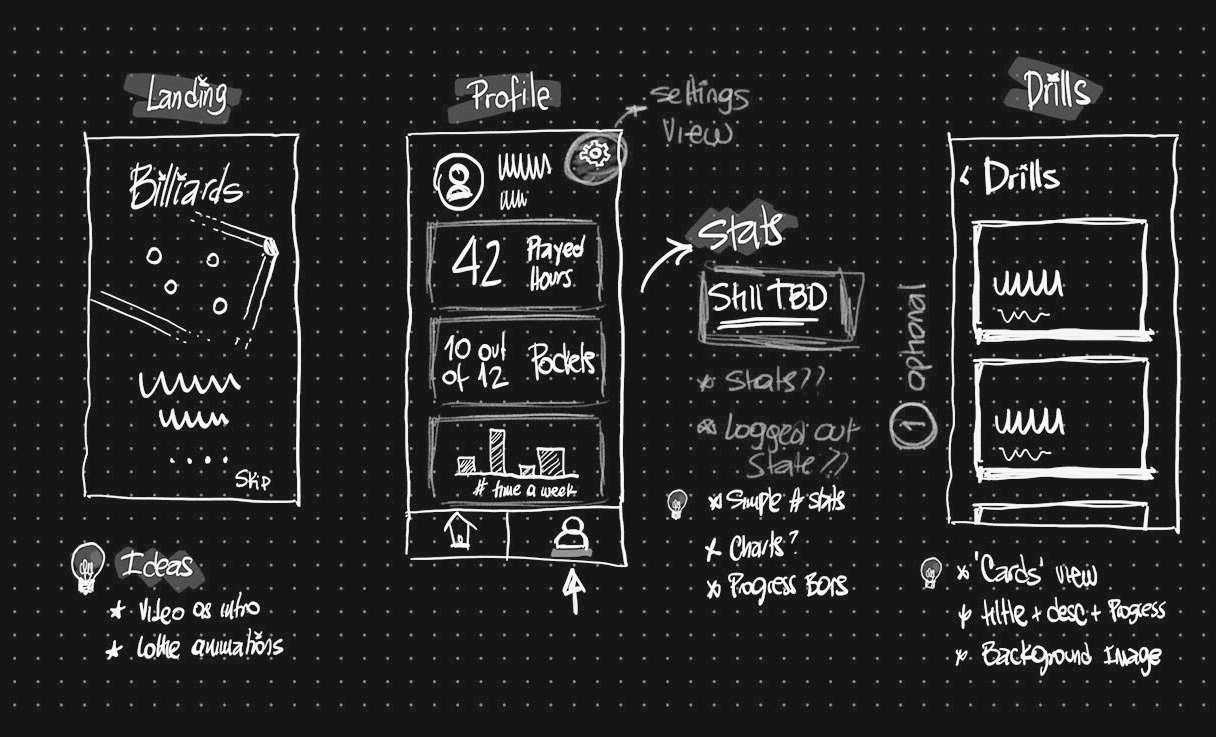 Landing
Billiards
Skip
Ideas
Video as intro
Lottie animations
Profile
settings
view
42 Played
Hours
10 out
of 12 Pockets
# time a week
Stats
Still TBD
Stats??
Logged out
State??
Simple # stats
Charts?
Progress Bars
Drills
< Drills
1 optional
'Cards' view
title + desc + Progress
Background Image